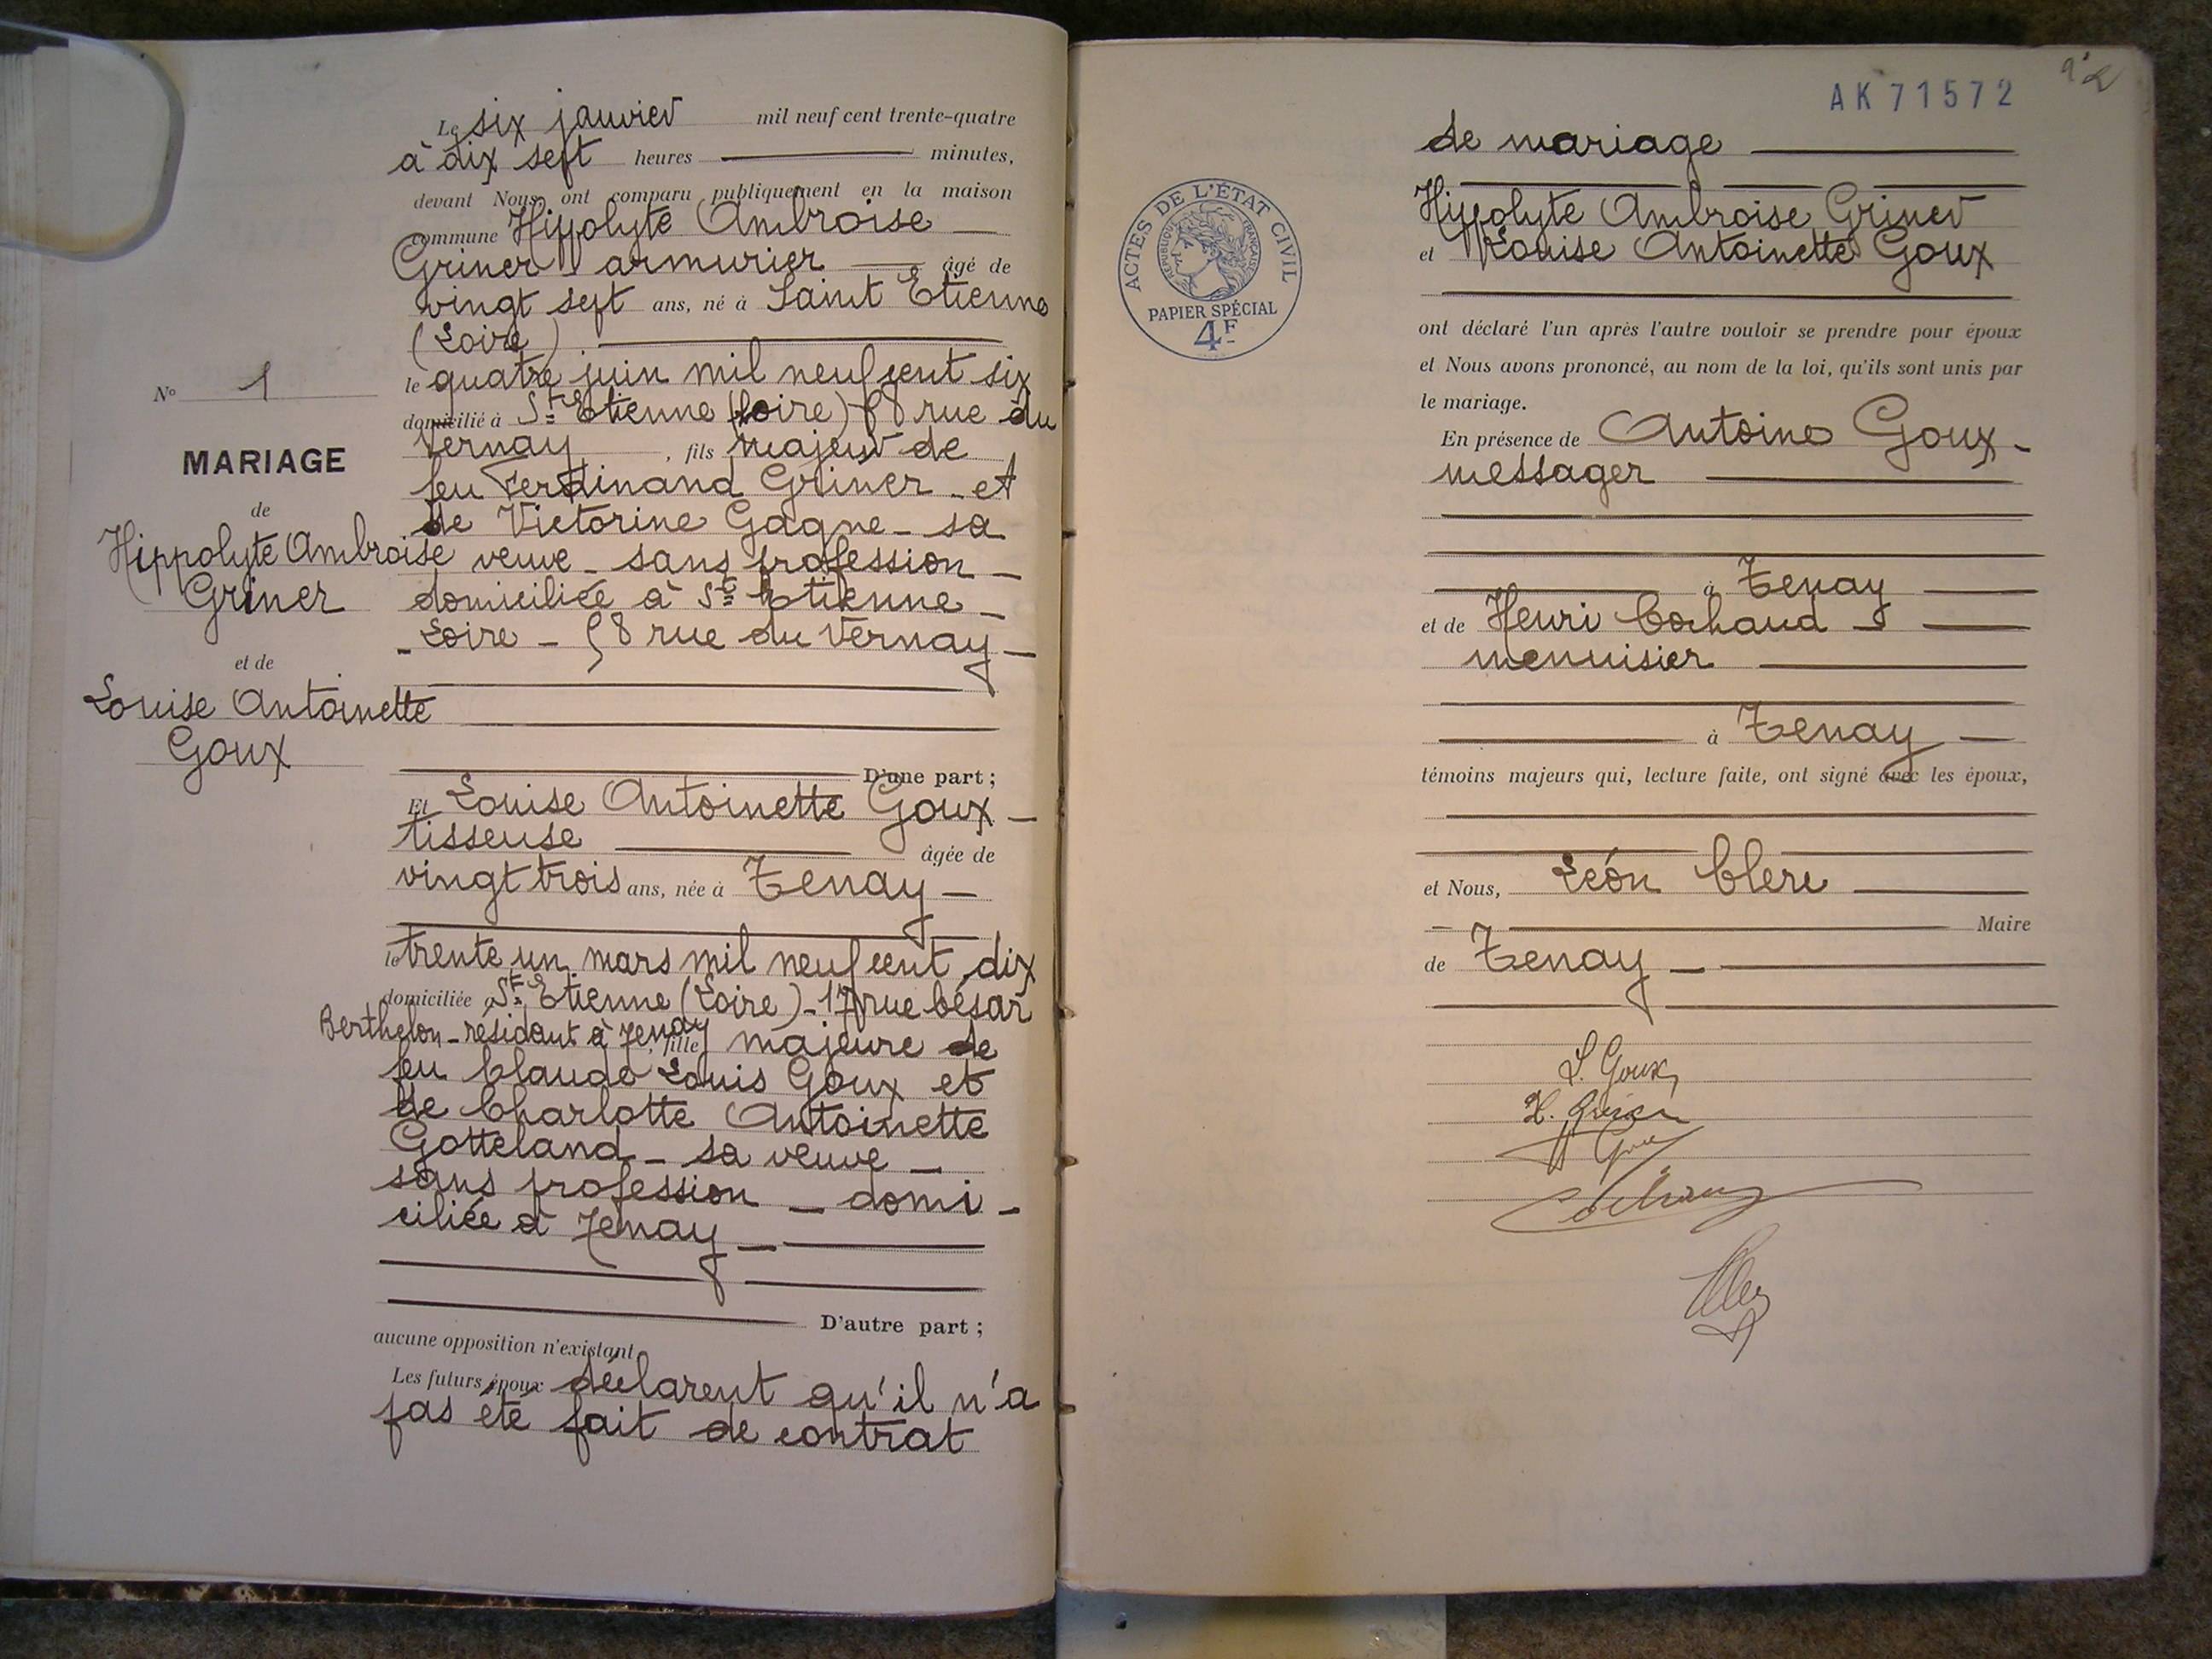 Le six janvier mil neuf cent trente-quatre
à dix sept heures minutes,
devant Nous, ont comparu publiquement en la maison
commune Hippolyte Ambroise
Griner - armurier âgé de
vingt sept ans, né à Saint Etienne
(Loire)
le quatre juin mil neuf cent six
domicilié à St Etienne (Loire) 58 rue du
Vernay, fils majeur de
feu Ferdinand Griner - et
de Victorine Gagne - sa
veuve - sans profession -
domiciliée à St Etienne -
- Loire - 58 rue du Vernay -
D'une part ;
Et Louise Antoinette Goux -
tisseuse âgée de
vingt trois ans, née à Tenay -
le trente un mars mil neuf cent dix
domiciliée à St Etienne (Loire) - 17 rue César
Berthelon - résidant à Tenay, fille majeure de
feu Claude Louis Goux et
de Charlotte Antoinette
Gotteland - sa veuve -
sans profession - domi -
ciliée à Tenay -
D'autre part ;
aucune opposition n'existant
Les futurs époux déclarent qu'il n'a
pas été fait de contrat
No 1
MARIAGE
de
Hippolyte Ambroise
Griner
et de
Louise Antoinette
Goux
AK 71572
2
ACTES DE L'ÉTAT CIVIL
RÉPUBLIQUE FRANÇAISE
PAPIER SPÉCIAL
4F
de mariage
Hippolyte Ambroise Griner
et Louise Antoinette Goux
ont déclaré l'un après l'autre vouloir se prendre pour époux
et Nous avons prononcé, au nom de la loi, qu'ils sont unis par
le mariage.
En présence de Antoine Goux -
messager
à Tenay
et de Henri Cochaud -
menuisier
à Tenay -
témoins majeurs qui, lecture faite, ont signé avec les époux,
et Nous, Léon Clerc
Maire
de Tenay -
L. Goux
H. Griner